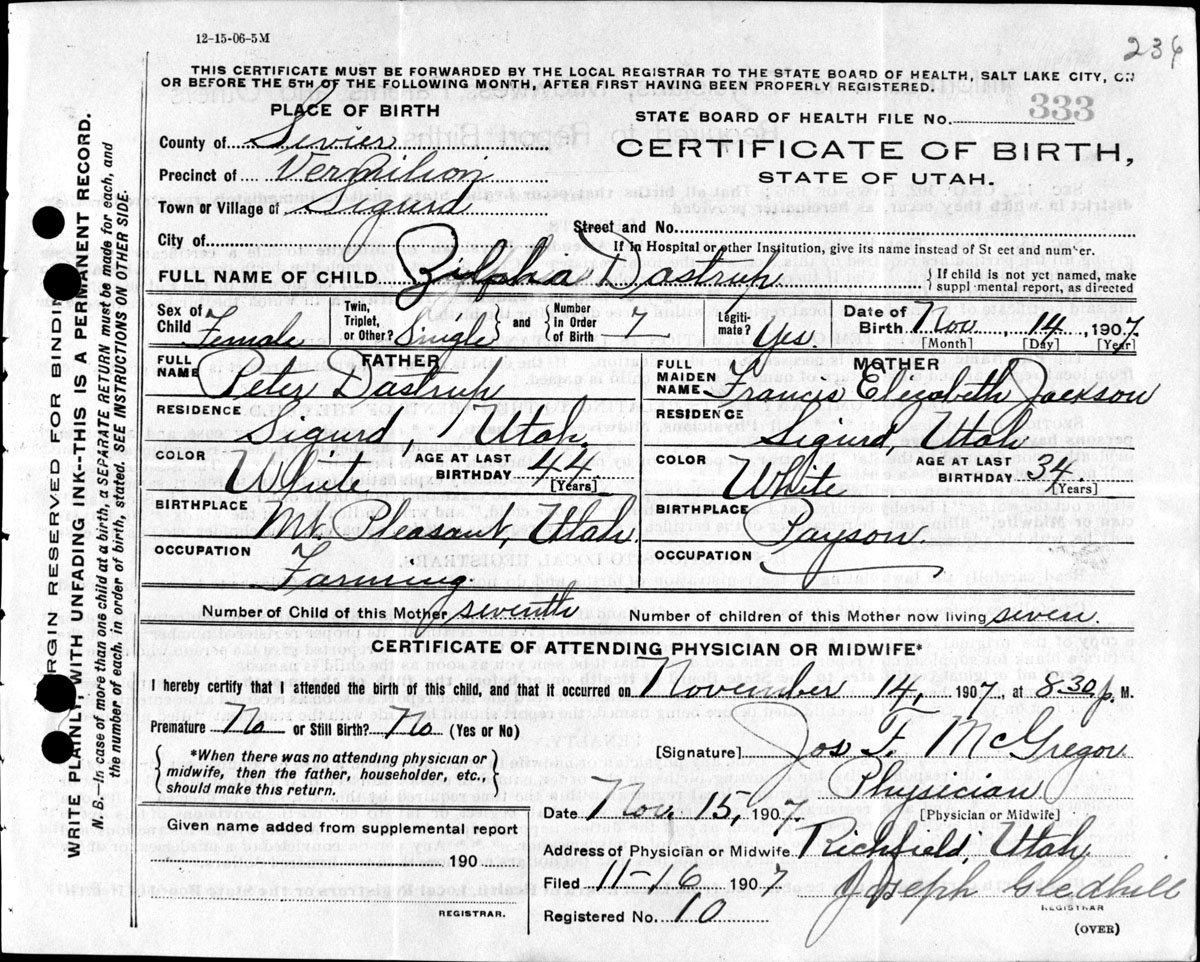 12-15-06-5M
236
THIS CERTIFICATE MUST BE FORWARDED BY THE LOCAL REGISTRAR TO THE STATE BOARD OF HEALTH, SALT LAKE CITY, ON
OR BEFORE THE 5TH OF THE FOLLOWING MONTH, AFTER FIRST HAVING BEEN PROPERLY REGISTERED.
PLACE OF BIRTH
STATE BOARD OF HEALTH FILE No. 333
County of Sevier
CERTIFICATE OF BIRTH,
STATE OF UTAH.
Precinct of Vermilion
Town or Village of Sigurd
Street and No.
City of
If in Hospital or other Institution, give its name instead of St eet and number.
FULL NAME OF CHILD Zilpha Dastrup
If child is not yet named, make
suppl mental report, as directed
Sex of Child Female
Twin, Triplet, or Other? Single and Number in Order of Birth 7
Legiti-mate? Yes
Date of Birth Nov. 14, 1907
[Month] [Day] [Year]
FATHER
FULL NAME Peter Dastrup
RESIDENCE Sigurd, Utah.
COLOR White
AGE AT LAST BIRTHDAY 44
[Years]
BIRTHPLACE Mt. Pleasant, Utah.
OCCUPATION Farming.
MOTHER
FULL MAIDEN NAME Francis Elizabeth Jackson
RESIDENCE Sigurd, Utah
COLOR White
AGE AT LAST BIRTHDAY 34
[Years]
BIRTHPLACE Payson.
OCCUPATION
Number of Child of this Mother seventh
Number of children of this Mother now living seven.
CERTIFICATE OF ATTENDING PHYSICIAN OR MIDWIFE*
I hereby certify that I attended the birth of this child, and that it occurred on November 14, 1907, at 8-30 p M.
Premature No or Still Birth? No (Yes or No)
*When there was no attending physician or
midwife, then the father, householder, etc.,
should make this return.
[Signature] Jos F. McGregor
Physician
[Physician or Midwife]
Date Nov. 15, 1907
Address of Physician or Midwife Richfield Utah.
Filed 11-16 1907 Joseph Gledhill
REGISTRAR
Registered No. 10
(OVER)
Given name added from supplemental report
190
REGISTRAR.
MARGIN RESERVED FOR BINDING
WRITE PLAINLY, WITH UNFADING INK--THIS IS A PERMANENT RECORD.
N. B.--In case of more than one child at a birth, a SEPARATE RETURN must be made for each, and
the number of each, in order of birth, stated. SEE INSTRUCTIONS ON OTHER SIDE.